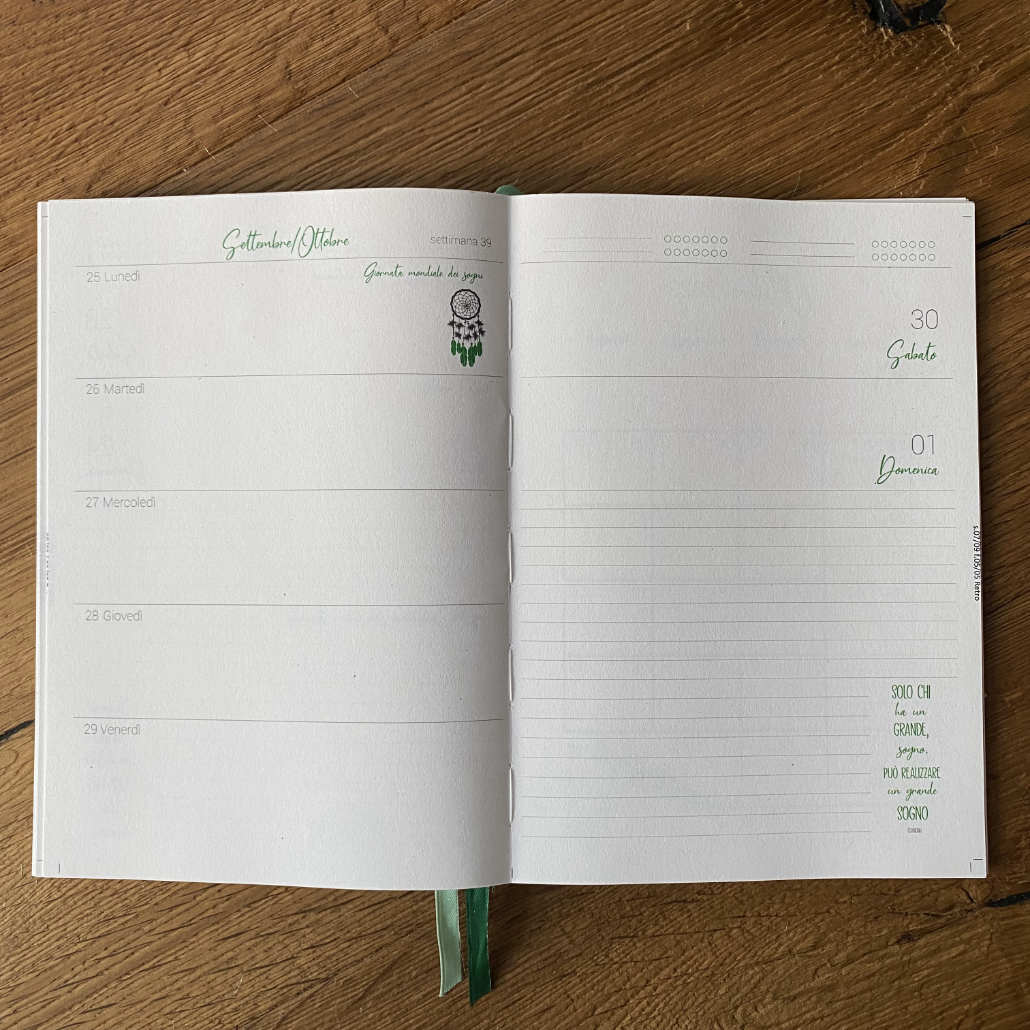 Settembre/Ottobre
settimana 39
25 Lunedì
Giornata mondiale dei sogni
26 Martedì
27 Mercoledì
28 Giovedì
29 Venerdì
30
Sabato
01
Domenica
s.07/09 f.05/05 Retro
SOLO CHI
ha un
GRANDE,
sogno,
PUÒ REALIZZARE
un grande
SOGNO